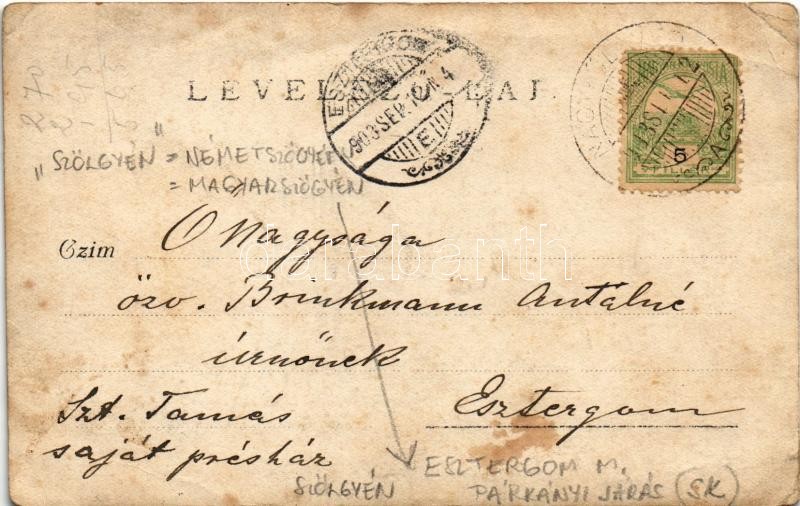 LEVELEZŐ-LAP.
ESZTERGOM
903 SEP. 12 N. 4
E
5
„SZŐLGYÉN" = NÉMETSZŐGYÉN
= MAGYARSZŐGYÉN
Czim
Ő Nagysága
özv. Brinkmann Antalné
úrnőnek
Szt. Tamás
Esztergom
saját présház
SZŐLGYÉN
ESZTERGOM M.
PÁRKÁNYI JÁRÁS (SK)
darabanth